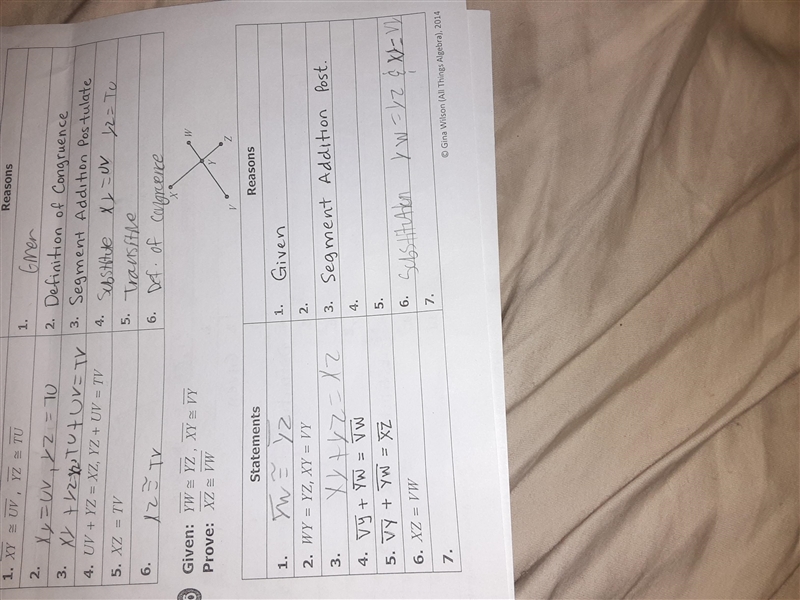 Reasons
1. XY ≅ UV , YZ ≅ TU
1. Given
2. XY = UV , YZ = TU
2. Definition of Congruence
3. Segment Addition Postulate
4. UV + YZ = XZ, YZ + UV = TV
4. Substitute XY = UV YZ = TU
5. XZ = TV
5. Transitive
6. XZ ≅ TV
6. Def. of Congruence
Given: YW ≅ YZ , XY ≅ VY
Prove: XZ ≅ VW
X
W
Y
V
Z
Statements
Reasons
1. YW ≅ YZ
1. Given
2. WY = YZ, XY = VY
2.
3. XY + YZ = XZ
3. Segment Addition Post.
4. VY + YW = VW
4.
5. VY + YW = XZ
5.
6. XZ = VW
6. Substitution YW = YZ & XY =
7.
7.
© Gina Wilson (All Things Algebra), 2014